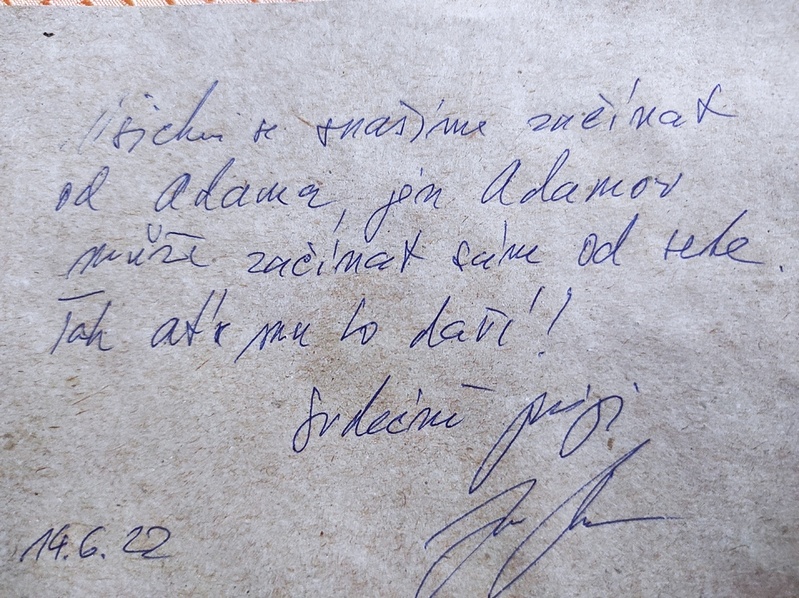 Všichni se snažíme začínat
od Adama, jen Adamov
může začínat sám od sebe.
Tak ať se mu to daří!
Srdečně přeji
14.6.22